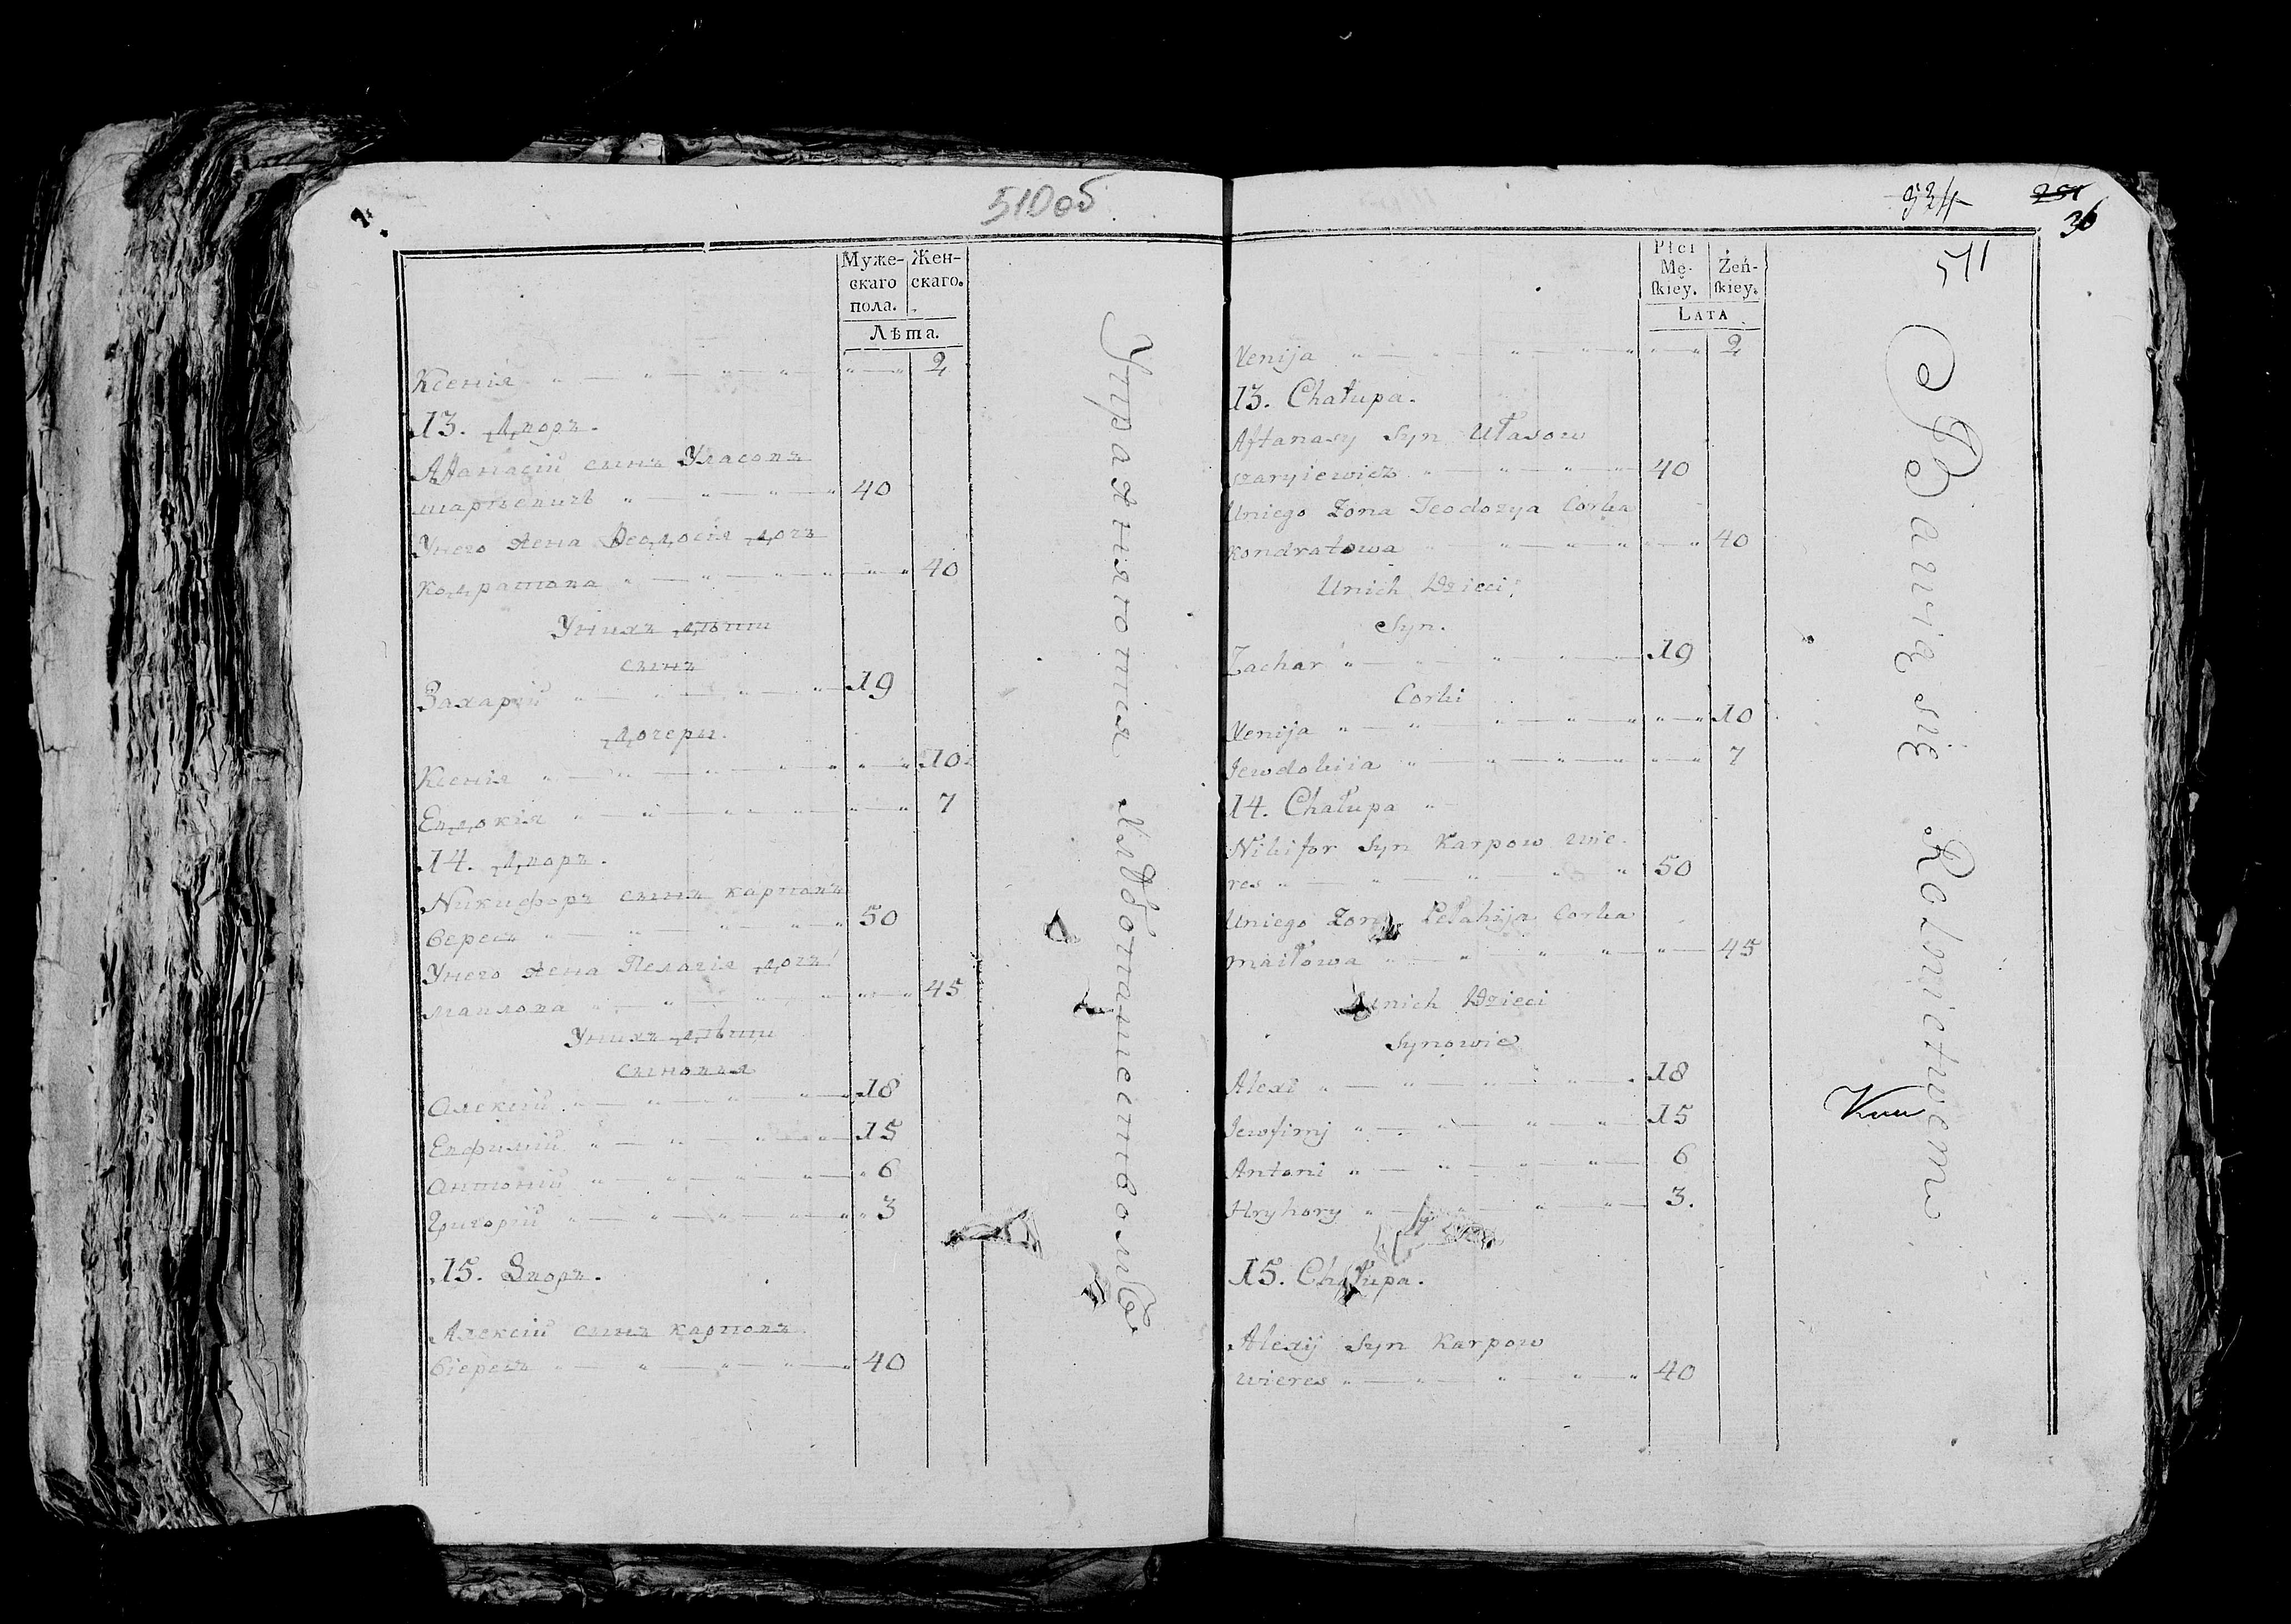 510об
Муже-
скаго
пола.
Жен-
скаго.
Лѣта.
Ксенія 2
13. Дворъ.
Афанасій сынъ Уласовъ
шарѣевичъ 40
Унего жена Ѳеодосія дочь
кодратова 40
Унихъ дѣти
сынъ
Захарій 19
Дочеры.
Ксенія 10
Евдокія 7
14. Дворъ.
Никифоръ сынъ карповъ
вересъ 50
Унего жена Пелагія дочь
маилова 45
Унихъ дѣти
сыновья
Алексій 18
Евфимій 15
Антоній 6
Григорій 3
15. Дворъ.
Алексій сынъ карповъ
віересъ 40
Упражняются хлѣбопашествомъ
924
251
36
511
Płci
Mę-
skiey.
Żeń-
skiey.
LATA
Xenija 2
13. Chałupa.
Aftanasy Syn Ułasow
szaryiewicz 40
Uniego Zona Teodozya Corka
Kondratowa 40
Unich Dzieci
Syn.
Zachar 19
Corki
Xenija 10
Jewdokiia 7
14. Chałupa
Nikifor Syn Karpow wie-
res 50
Uniego Zona Pełahija Corka
maiłowa 45
Unich Dzieci
Synowie
Alexi 18
Jewfimj 15
Antoni 6
Hryhory 3.
15. Chałupa.
Alexij Syn Karpow
wieres 40
Bawią się Rolnictwem